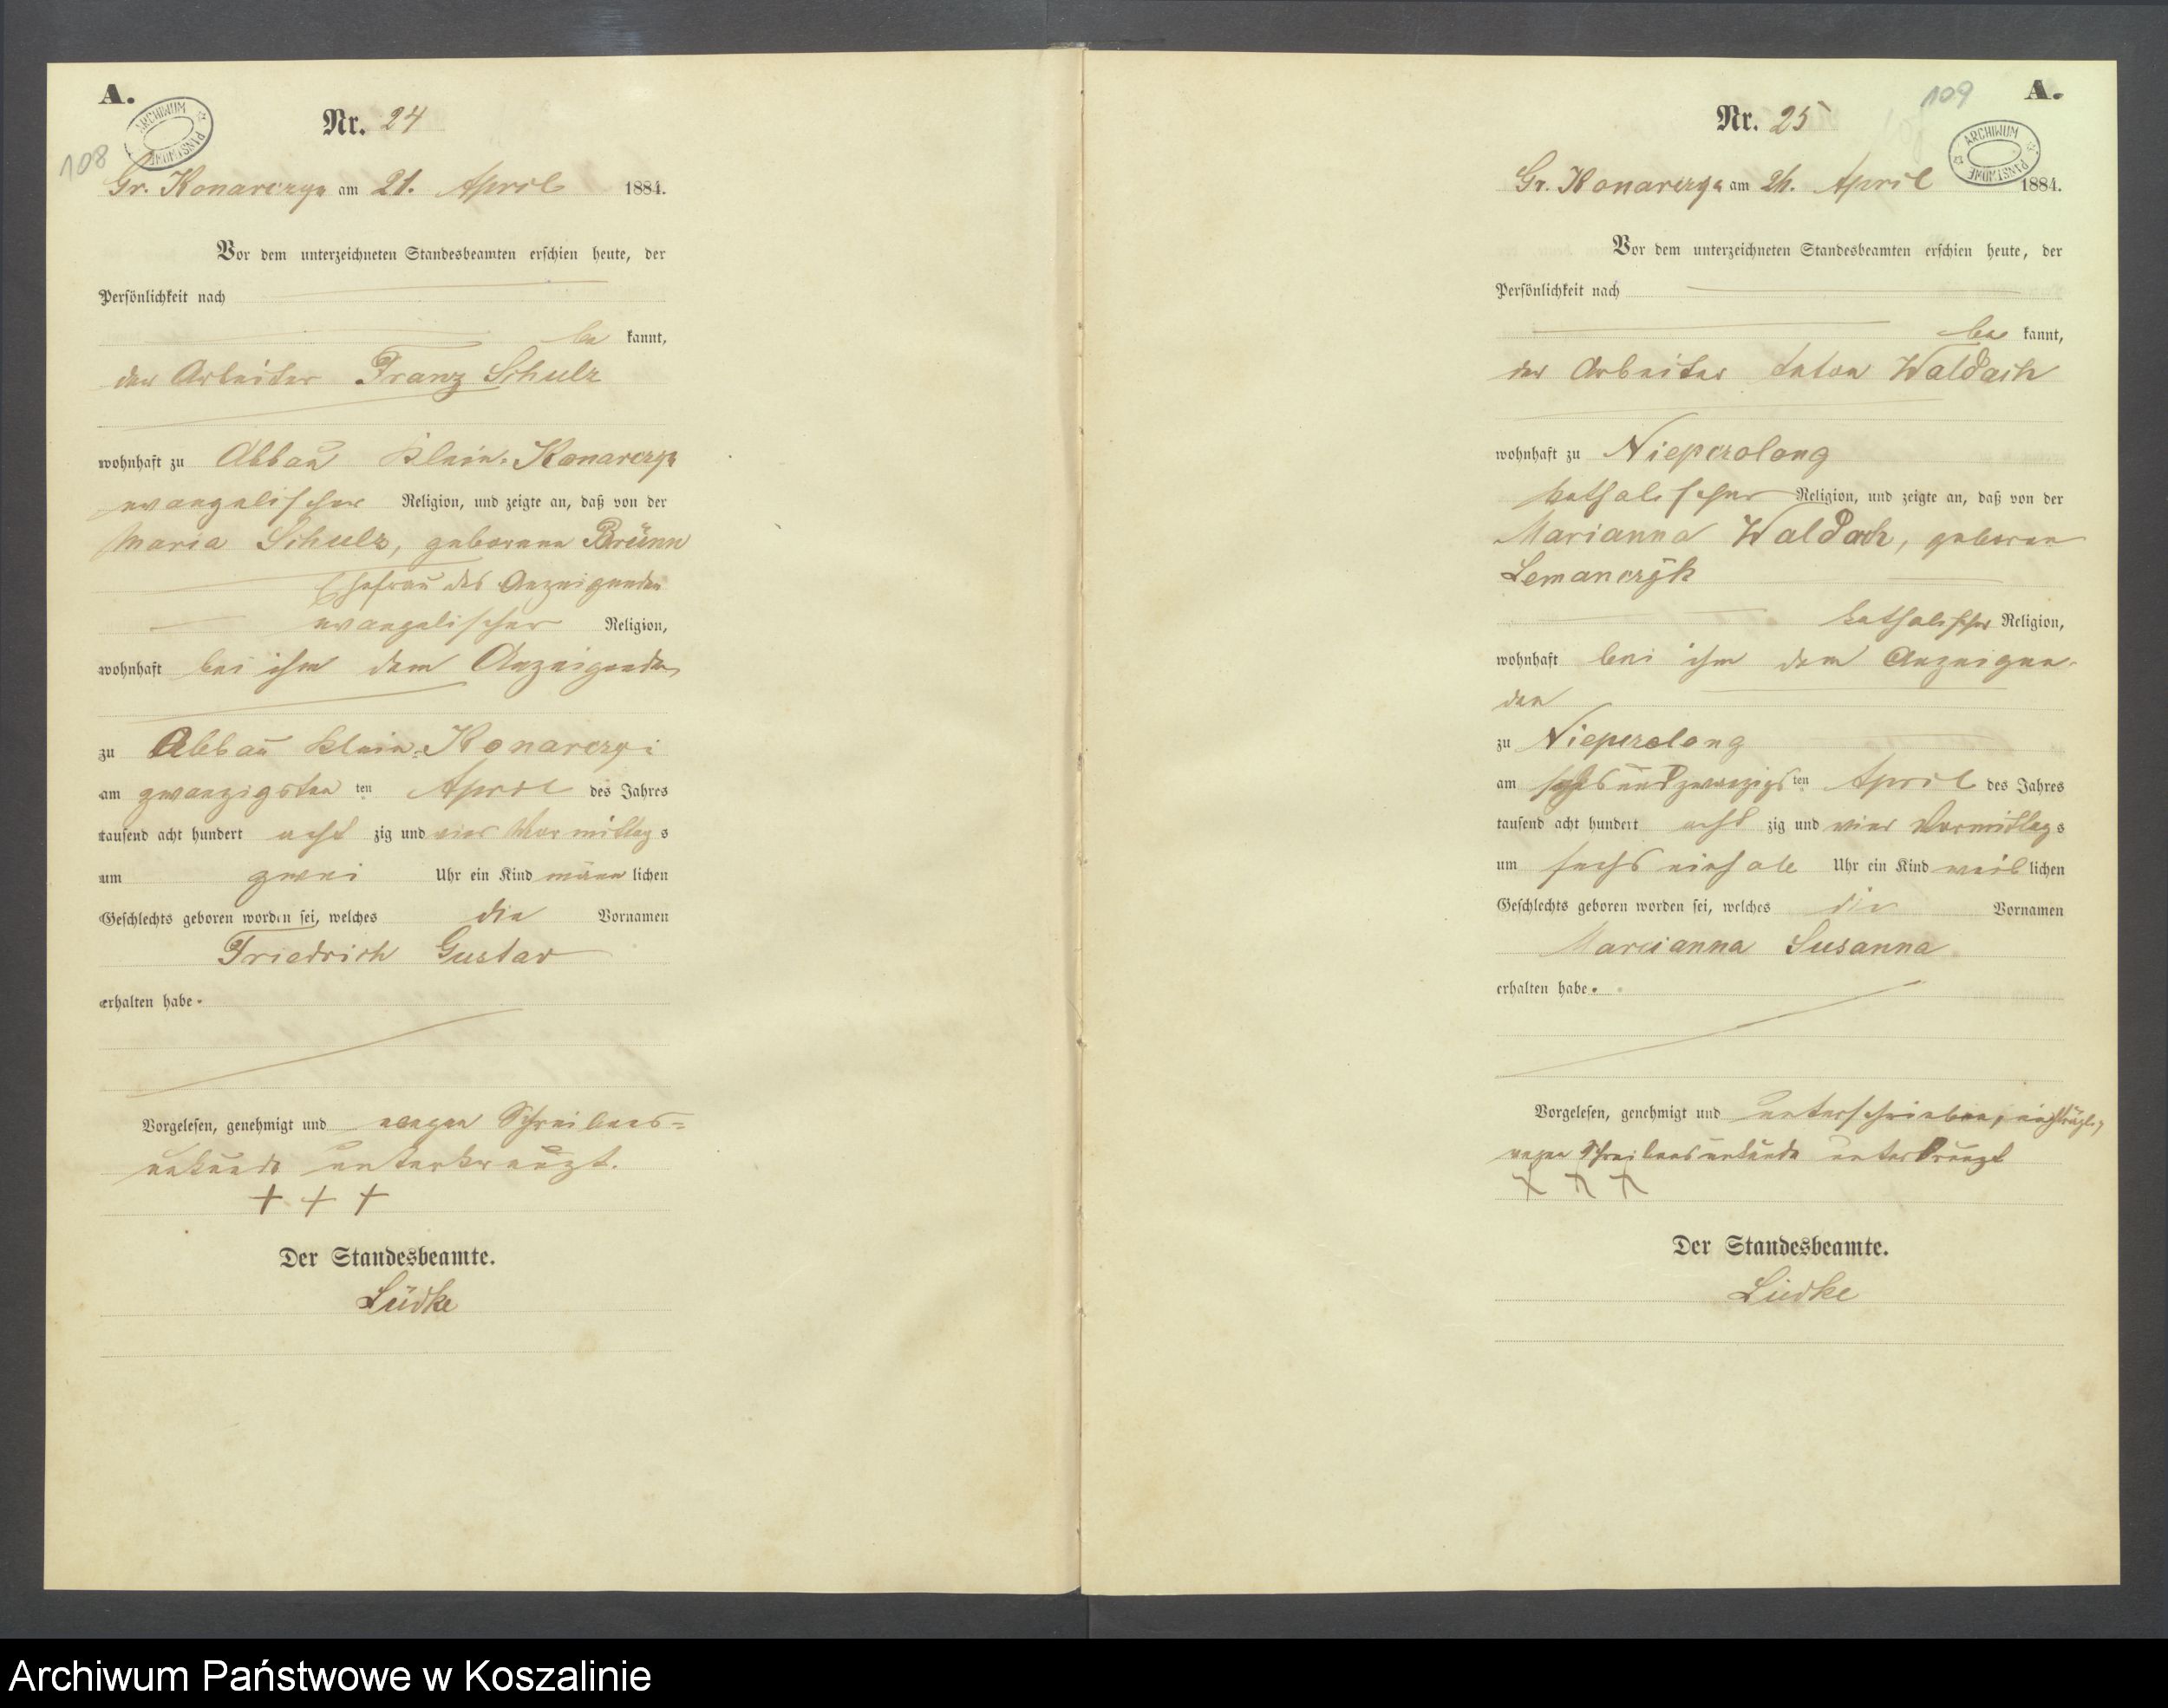 A.
ARCHIWUM PAŃSTWOWE
108
Nr. 24
Gr. Konarczyn am 21. April 1884.
Vor dem unterzeichneten Standesbeamten erschien heute, der
Persönlichkeit nach
be kannt,
der Arbeiter Franz Schulz
wohnhaft zu Abbau Klein-Konarczyn
evangelischer Religion, und zeigte an, daß von der
Maria Schulz, geborene Brünn
Ehefrau des Anzeigenden
evangelischer Religion,
wohnhaft bei ihm dem Anzeigenden
zu Abbau Klein-Konarczyn
am zwanzigsten ten April des Jahres
tausend acht hundert acht zig und vier Vor mittag s
um zwei Uhr ein Kind männ lichen
Geschlechts geboren worden sei, welches die Vornamen
Friedrich Gustav
erhalten habe.
Vorgelesen, genehmigt und wegen Schreibens=
unkunde unterkreuzt.
+ + +
Der Standesbeamte.
Lüdke
109
A.
ARCHIWUM PAŃSTWOWE
Nr. 25
Gr. Konarczyn am 26. April 1884.
Vor dem unterzeichneten Standesbeamten erschien heute, der
Persönlichkeit nach
be kannt,
der Arbeiter Anton Waldach
wohnhaft zu Nieperolong
katholischer Religion, und zeigte an, daß von der
Marianna Waldach, geboren
Lemanczyk
katholischer Religion,
wohnhaft bei ihm dem Anzeigen-
den
zu Nieperolong
am sechsundzwanzigs ten April des Jahres
tausend acht hundert acht zig und vier Vormittag s
um sechs einhalb Uhr ein Kind weib lichen
Geschlechts geboren worden sei, welches die Vornamen
Marianna Susanna
erhalten habe.
Vorgelesen, genehmigt und unterschrieben,
wegen Schreibensunkunde unterkreuzt
+ + +
Der Standesbeamte.
Lüdke
Archiwum Państwowe w Koszalinie